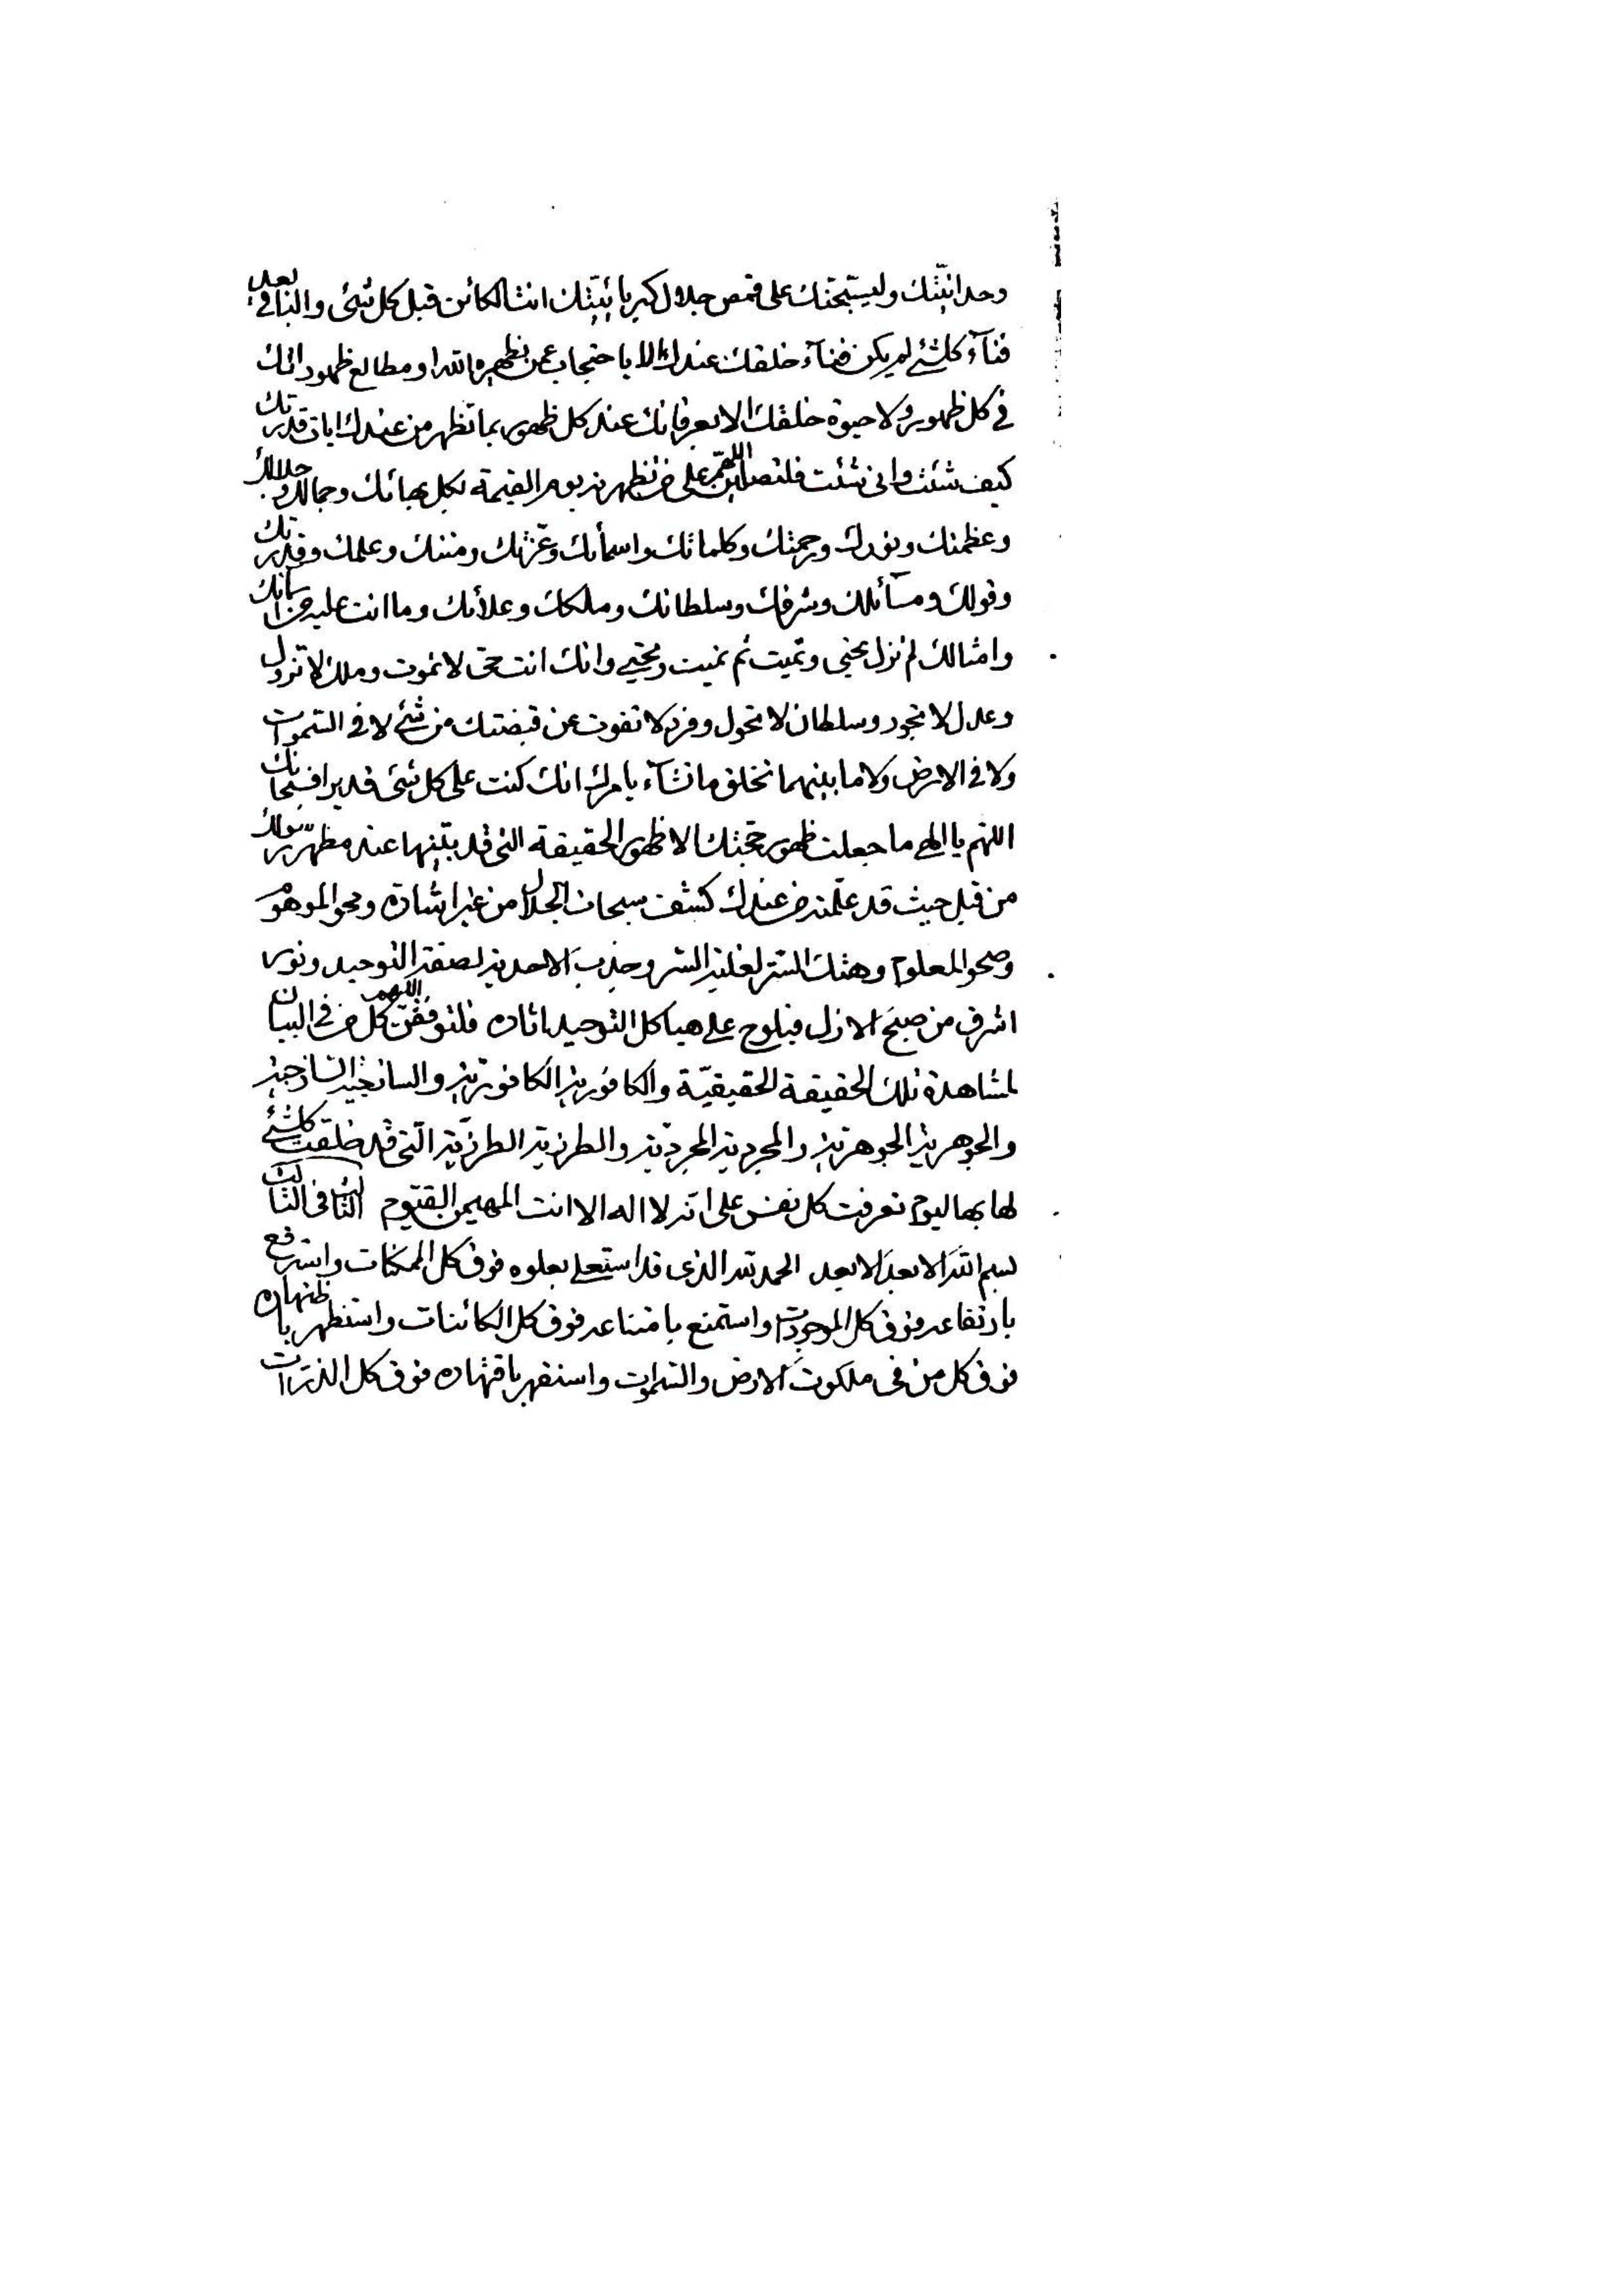 وحدانيتك وليسبحنك على قمص جلال كبريائيتك انت الكائن قبل كل شئ والباقي بعد
فنآء كلشئ لم يكن فنآء خلقك عندك الا باحتجاب عمن يظهره الله او مطالع ظهوراتك
في كل ظهور ولا حيوة خلقك الا بعرفانك عند كل ظهور بما تظهر من عندك ايات قدرتك
كيف شئت وانى شئت فلتصلين اللهم على من تظهرنه يوم القيمة بكل بهائك وجمالك وجلالك
وعظمتك ونورك ورحمتك وكلماتك واسمائك وعزتك ومننك وعلمك وقدرتك
وقولك ومسآئلك وشرفك وسلطانك وملكك وعلائك وما انت عليه من اسمائك
وامثالك لم تزل تحيي وتميت ثم تميت وتحيي وانك انت حي لا تموت وملك لا تزول
وعدل لا تجور وسلطان لا تحول وفرد لا تفوت عن قبضتك من شئ لا في السموات
ولا في الارض ولا ما بينهما تخلق ما تشآء بامرك انك كنت على كل شئ قديرا فسبحانك
اللهم يا الهي ما جعلت ظهور حجتك الا ظهور الحقيقة التي قد بينها عند مظهر
من قبل حيث قد علمته من عندك كشف سبحات الجلال من غير اشارة ومحو الموهوم
وصحو المعلوم وهتك الستر لغلبة السر وجذب الاحدية لصفة التوحيد ونور
اشرق من صبح الازل فيلوح على هياكل التوحيد اثاره فلتوفقن اللهم كل من في البيان
لمشاهدة تلك الحقيقة الحقيقية والكافورية الكافورية والساذجية الساذجية
والجوهرية الجوهرية والمجردية المجردية والطرزية الطرزية التي قد خلقت كلشئ
لها بها ليوم تعرفت كل نفس على انه لا اله الا انت المهيمن القيوم الثالث في الثالث
بسم الله الابعد الابعد الحمد لله الذى قد استعلى بعلوه فوق كل الممكنات واسترفع
بارتفاعه فوق كل الموجودات واستمنع بامتناعه فوق كل الكائنات واستظهر باظتهاره
فوق كل من في ملكوت الارض والسموات واستقهر باقتهاره فوق كل الذرات